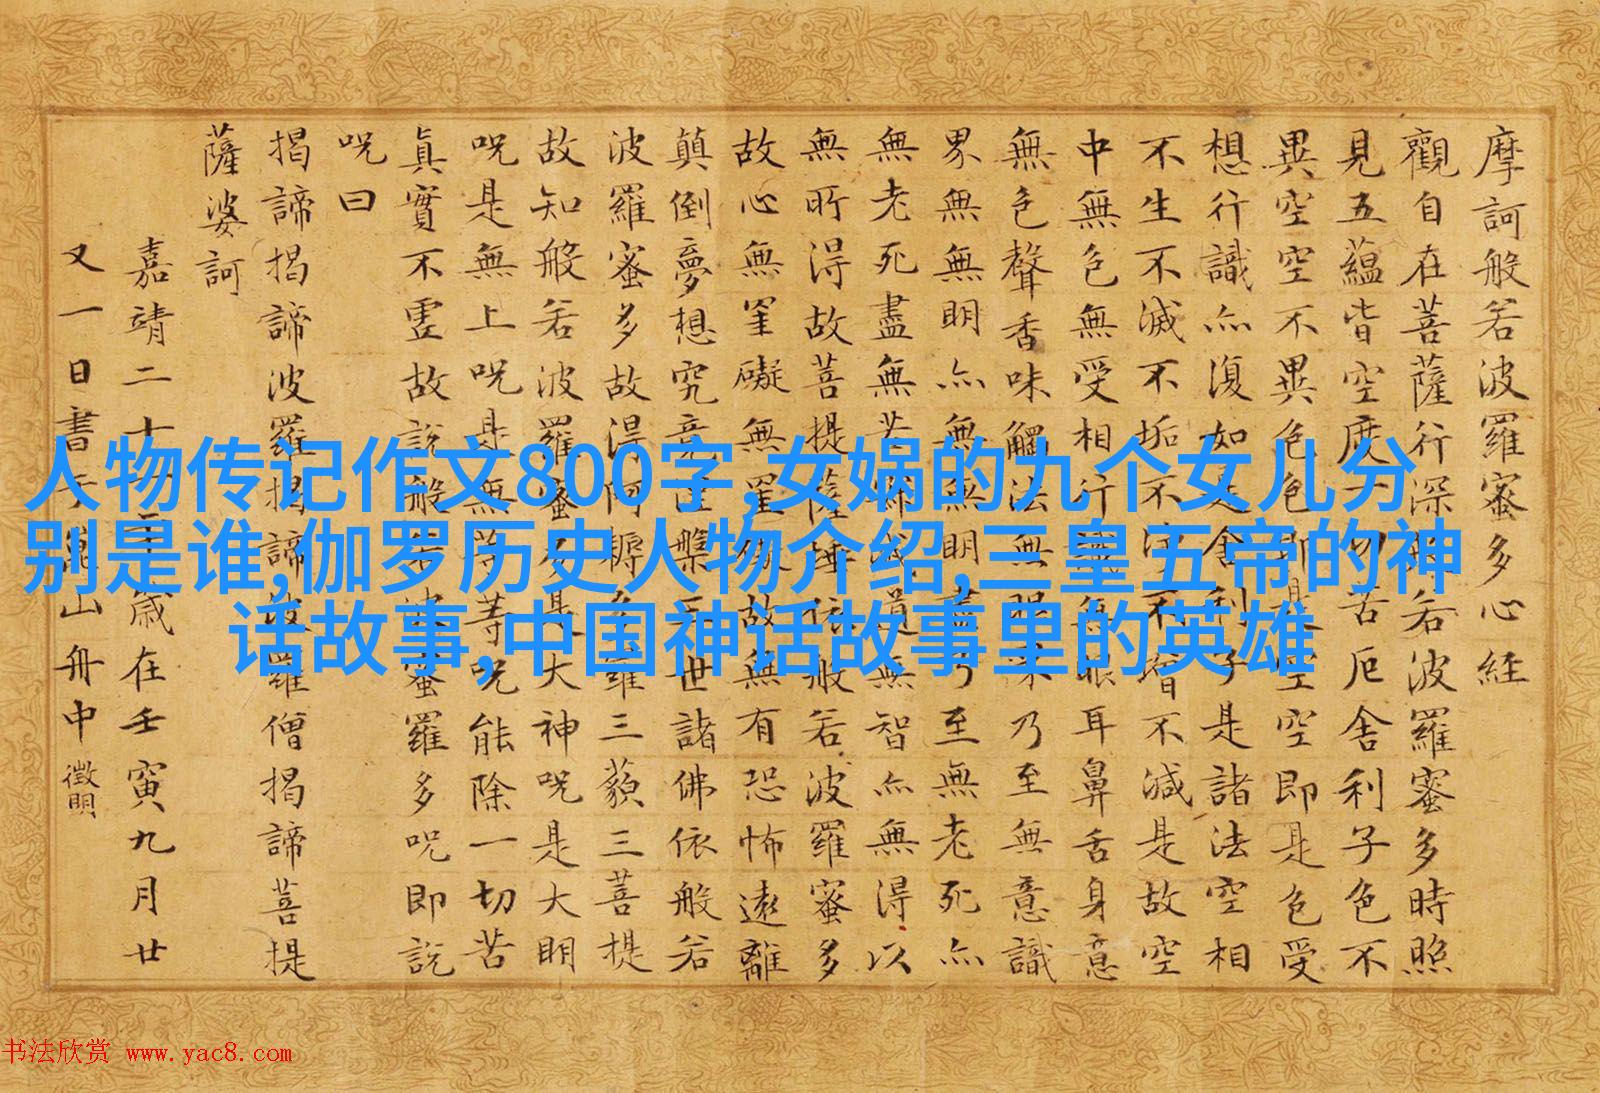 摩訶般若波羅蜜多心経
觀自在菩薩行深般若波羅蜜多時照
見五蘊皆空度一切苦厄舍利子色不
異空空不異色色即是空空即是色受
想行識亦復如是舍利子是諸法空相
不生不滅不垢不淨不增不減是故空
中無色無受相行識無眼耳鼻舌身意
無色聲香味觸法無眼界乃至無意識
界無無明亦無無明盡乃至無老死亦
無老死盡無苦集滅道無智亦無得以
無所得故菩提薩埵依般若波羅蜜多
故心無罣礙無罣礙故無有恐怖遠離
顛倒夢想究竟涅槃三世諸佛依般若
波羅蜜多故得阿耨多羅三藐三菩提
故知般若波羅蜜多是大神呪是大明
呪是無上呪是無等等呪能除一切苦
真實不虛故說般若波蜜羅多呪即說
呪曰
揭諦揭諦波羅揭諦波羅僧揭諦菩提
薩婆訶
嘉靖二十一年歲在壬寅九月廿
又一日書于崑山舟中 徵明
人物传记作文800字,女娲的九个女儿分
别是谁,伽罗历史人物介绍,三皇五帝的神
话故事,中国神话故事里的英雄
书法欣赏 www.yac8.com